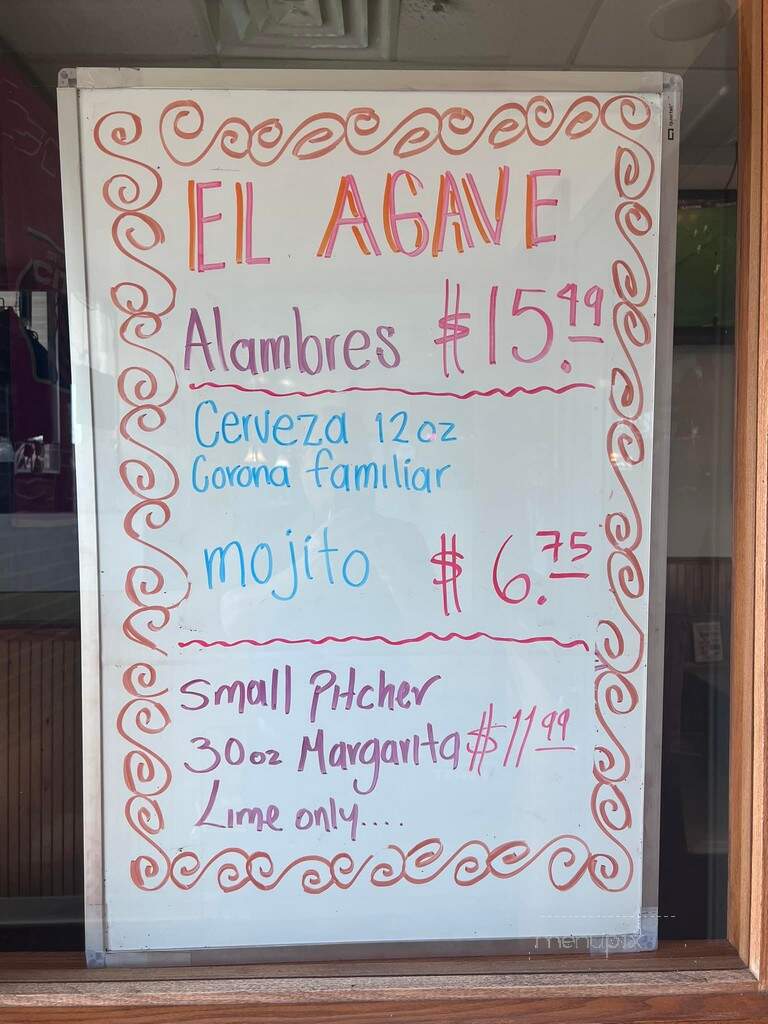 EL AGAVE
Alambres $15.49
Cerveza 12oz
Corona familiar
mojito $6.75
Small Pitcher
30oz Margarita $11.99
Lime only....
menupix